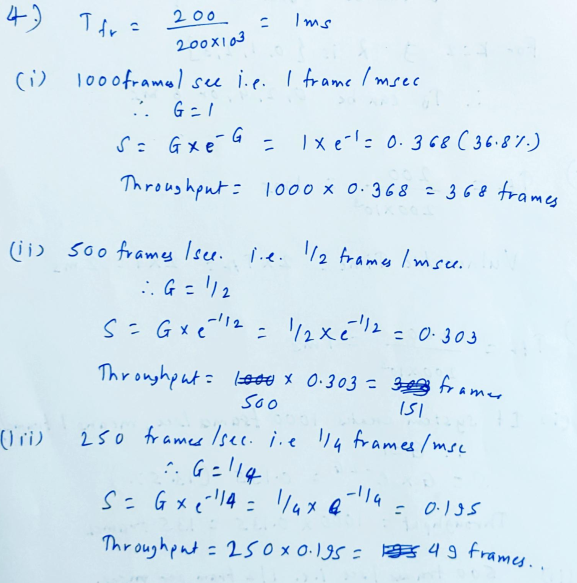 4) Tfr = 200 / 200x10³ = 1ms
(i) 1000frames/ sec i.e. 1 frame / msec
∴ G = 1
S = G x e^-G = 1 x e^-1 = 0.368 (36.8%)
Throughput = 1000 x 0.368 = 368 frames
(ii) 500 frames /sec. i.e. 1/2 frames / msec.
∴ G = 1/2
S = G x e^-1/2 = 1/2 x e^-1/2 = 0.303
Throughput = 1000 x 0.303 = 303 frames
500 151
(iii) 250 frames /sec. i.e 1/4 frames / msc
∴ G = 1/4
S = G x e^-1/4 = 1/4 x e^-1/4 = 0.195
Throughput = 250 x 0.195 = 195 49 frames..